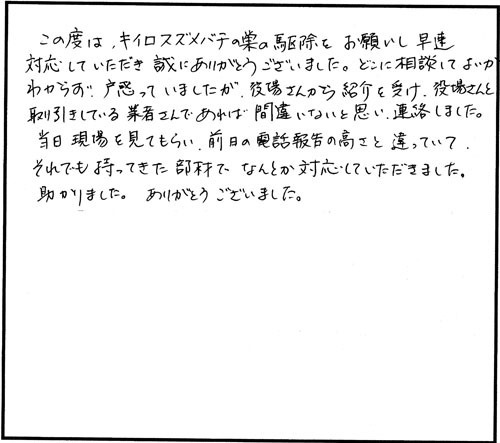 この度は、キイロスズメバチの巣の駆除を お願いし 早速
対応していただき 誠にありがとうございました。どこに相談してよいか
わからず、戸惑っていましたが、役場さんから紹介を受け、役場さんと
取り引きしている 業者さんであれば 間違いないと思い、連絡しました。
当日 現場を見てもらい、前日の電話報告の高さと 違っていて、
それでも 持ってきた 部材で なんとか対応していただきました。
助かりました。 ありがとうございました。